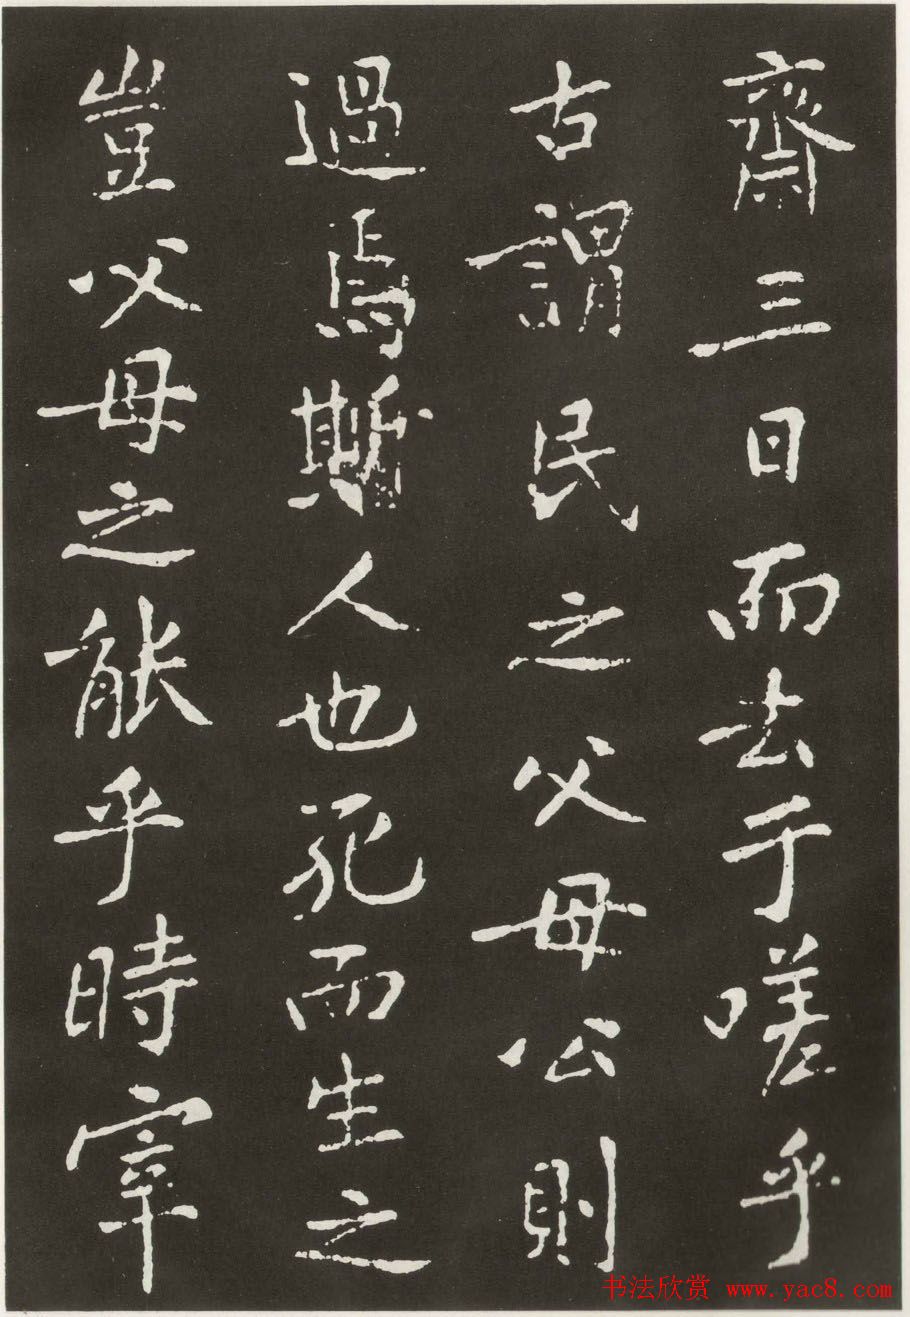 齋三日而去于嗟乎
古謂民之父母公則
過焉斯人也死而生之
豈父母之能乎時宰
书法欣赏 www.yac8.com